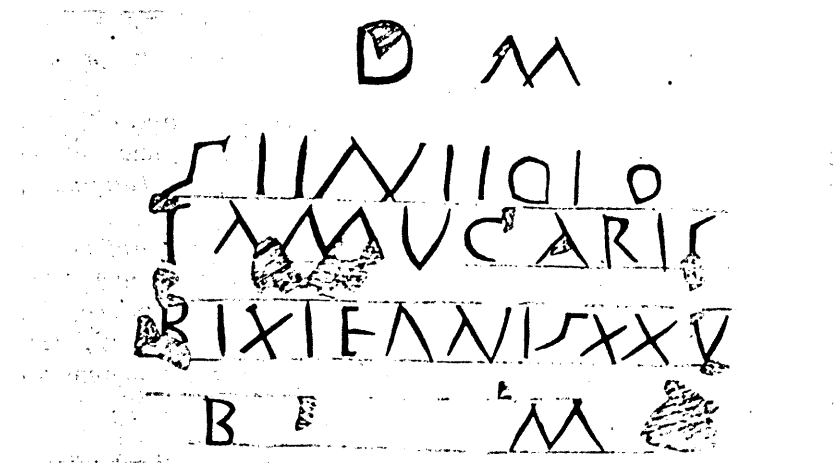 D M
SIINIIDIO
TAMUCARIS
BIXIEANISXXV
B M